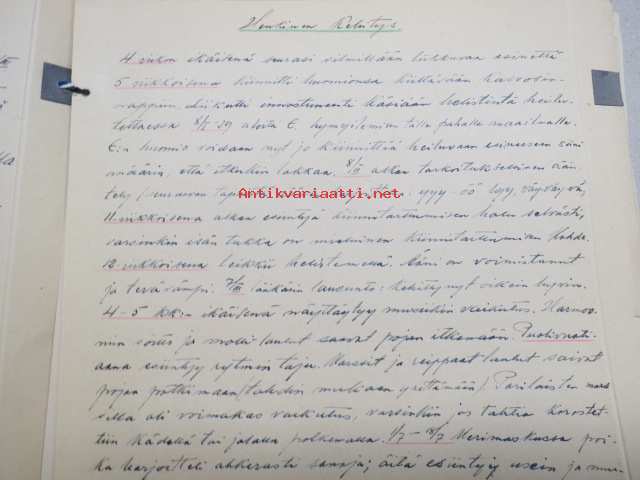 Henkinen Kehitys
4 viikon ikäisenä seurasi silmillään liikkuvaa esinettä
5 viikkoisena kiinnitti huomionsa kiiltävään kalvosin-
nappiin, liikutti innostuneesti käsiään helistintä heilu-
tettaessa 8/2-39 aloitti E. hymyilemisen tälle pahalle maailmalle.
E:n huomio voidaan nyt jo kiinnittää heiluvaan esineeseen siinä
määrin, että itkukin lakkaa. 8/3 alkaa tarkoituksellinen ään-
tely (seuraavan tapaan yyy öö
Antikvariaatti.net
11 viikkoisena alkaa esiintyä kiinnitarttumisen halu selvästi,
varsinkin isän tukka on mieluinen kiinnitarttumisen kohde.
12 viikkoisena leikkii helistimellä. Ääni on voimistunut
ja terävämpi. lääkärin lausunto: kehittynyt oikein hyvin.
4-5 kk:n ikäisenä näyttäytyy musiikin vaikutus. Harmoo-
nin soitto ja molli laulut saavat pojan itkemään. Puolivuoti-
aana esiintyy rytmin tajua. Marssit ja reippaat laulut saivat
pojan potkimaan (tahdin mukaan yrittämään). Parilaisten mars-
silla oli voimakas vaikutus, varsinkin jos tahtia korostet-
tiin kädellä tai jalalla polkemalla. 1/7-18/7 Merimaskussa poi-
ka harjoitteli ahkerasti sanoja; äitä esiintyy usein ja mum-